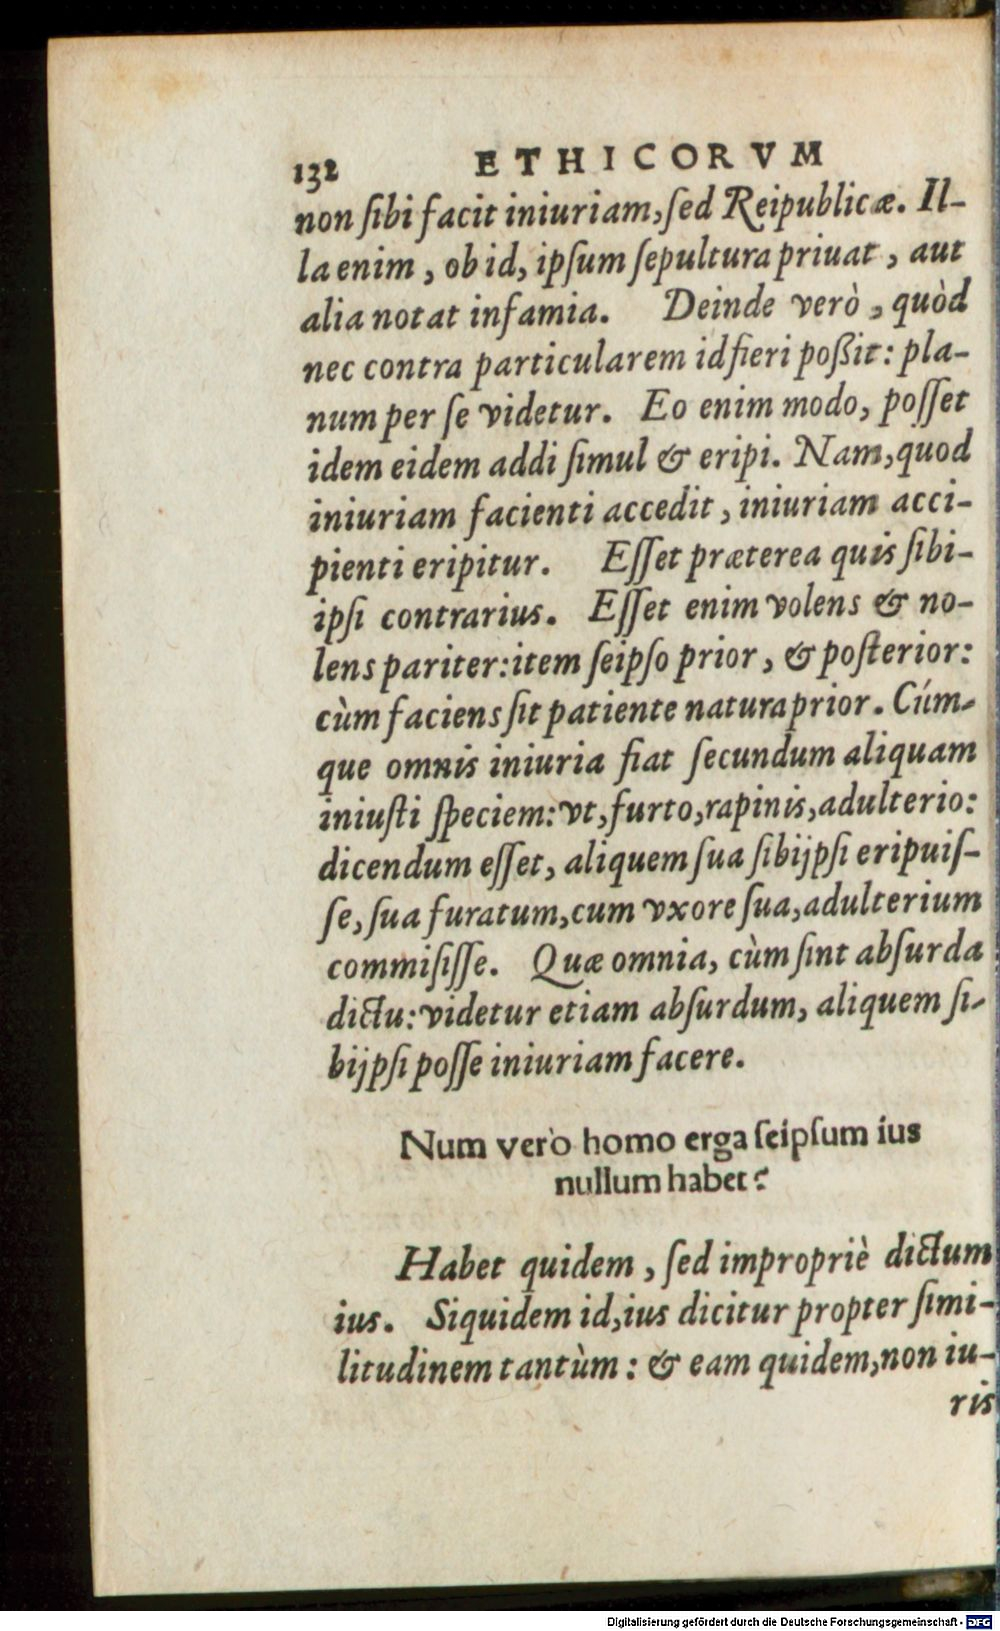 132 ETHICORVM
non ſibi facit iniuriam, ſed Reipublicæ. Il-
la enim, ob id, ipſum ſepultura priuat, aut
alia notat infamia. Deinde verò, quòd
nec contra particularem id fieri poßit: pla-
num per ſe videtur. Eo enim modo, poſſet
idem eidem addi ſimul & eripi. Nam, quod
iniuriam facienti accedit, iniuriam acci-
pienti eripitur. Eſſet præterea quis ſibi-
ipſi contrarius. Eſſet enim volens & no-
lens pariter: item ſeipſo prior, & poſterior:
cùm faciens ſit patiente natura prior. Cúm-
que omnis iniuria fiat ſecundum aliquam
iniuſti ſpeciem: vt, furto, rapinis, adulterio:
dicendum eſſet, aliquem ſua ſibijpſi eripuiſ-
ſe, ſua furatum, cum vxore ſua, adulterium
commiſiſſe. Quæ omnia, cùm ſint abſurda
dictu: videtur etiam abſurdum, aliquem ſi-
bijpſi poſſe iniuriam facere.
Num verò homo erga ſeipſum ius
nullum habet?
Habet quidem, ſed impropriè dictum
ius. Siquidem id, ius dicitur propter ſimi-
litudinem tantùm: & eam quidem, non iu-
ris
Digitalisierung gefördert durch die Deutsche Forschungsgemeinschaft - DFG